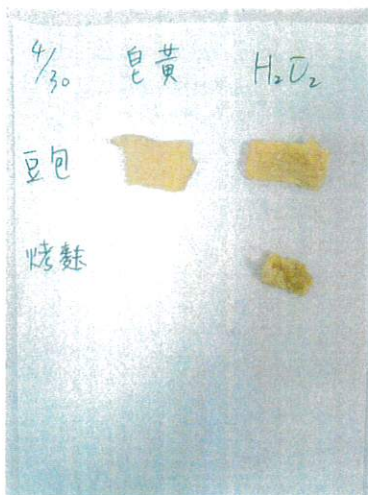 4/30 皂黃 H₂O₂
豆包
烤麩